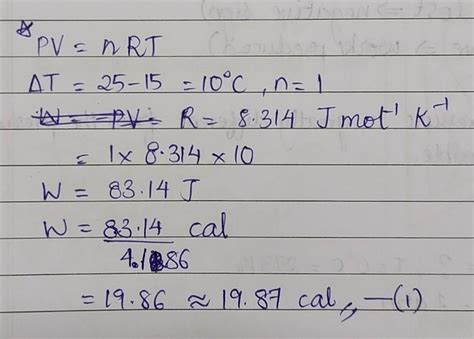 * PV = nRT
ΔT = 25-15 = 10°C, n=1
~~W = PV =~~ R = 8.314 J mol⁻¹ K⁻¹
= 1 x 8.314 x 10
W = 83.14 J
W = 83.14 / 4.186 cal
= 19.86 ≈ 19.87 cal,, —(1)